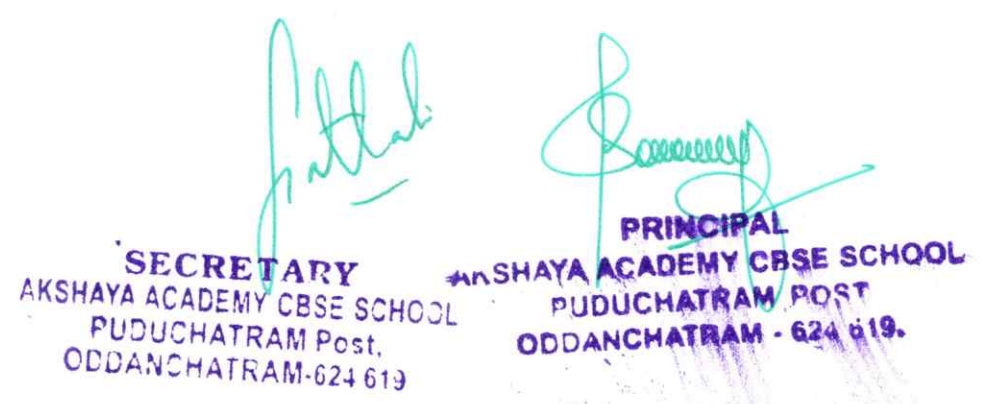 SECRETARY
AKSHAYA ACADEMY CBSE SCHOOL
PUDUCHATRAM Post,
ODDANCHATRAM-624 619
PRINCIPAL
AKSHAYA ACADEMY CBSE SCHOOL
PUDUCHATRAM POST
ODDANCHATRAM - 624 619.